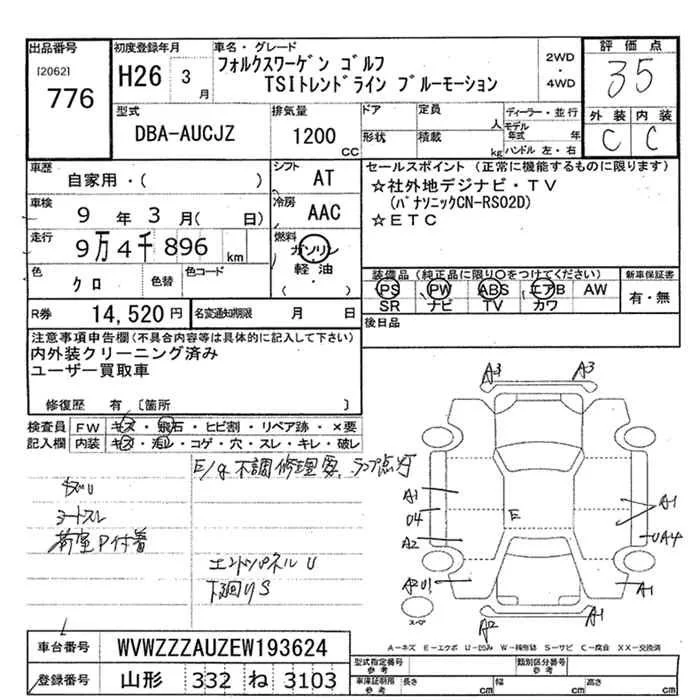 出品番号
[2062]
776
初度登録年月
H26 3月
車名・グレード
フォルクスワーゲン ゴルフ
TSIトレンドライン ブルーモーション
2WD
・
4WD
評価点
35
外装 内装
C C
型式
DBA-AUCJZ
排気量
1200
CC
ドア
形状
定員 人
積載 kg
ディーラー・並行
モデル年式 年
ハンドル 左・右
車歴
自家用・( )
シフト
AT
車検
9年3月( 日)
冷房
AAC
走行
9万4千896km
燃料
ガソリン
軽油
・
( )
色
クロ
色替
色コード
R券
14,520円
名変通知期限 月 日
セールスポイント (正常に機能するものに限ります)
☆社外地デジナビ・TV
(パナソニックCN-RS02D)
☆ETC
装備品 (純正品に限り○をつけてください)
新車保証書
PS PW ABS エアB AW
SR ナビ TV カワ
有・無
後日品
注意事項申告欄(不具合内容等は具体的に記入して下さい)
内外装クリーニング済み
ユーザー買取車
修復歴 有 〔箇所 〕
検査員
記入欄
FW キズ・飛石・ヒビ割・リペア跡・×要
内装 キズ・汚レ・コゲ・穴・スレ・キレ・破レ
E/g不調修理要 ランプ点灯
シートスレ
荷室P付着
エンドパネルU
下廻りS
A3 A3
A1
U4
A2
A2U1
E
A1
UA4
A1
A2 A1
スペア
A-キズ E-エクボ U-凹み W-補修跡 S-サビ C-腐食 XX-交換済
車台番号
WVWZZZAUZEW193624
登録番号
山形 332 ね 3103
型式指定番号
参考
類別区分番号
参考
車庫証明用
参考
長さ cm
幅 cm
高さ cm